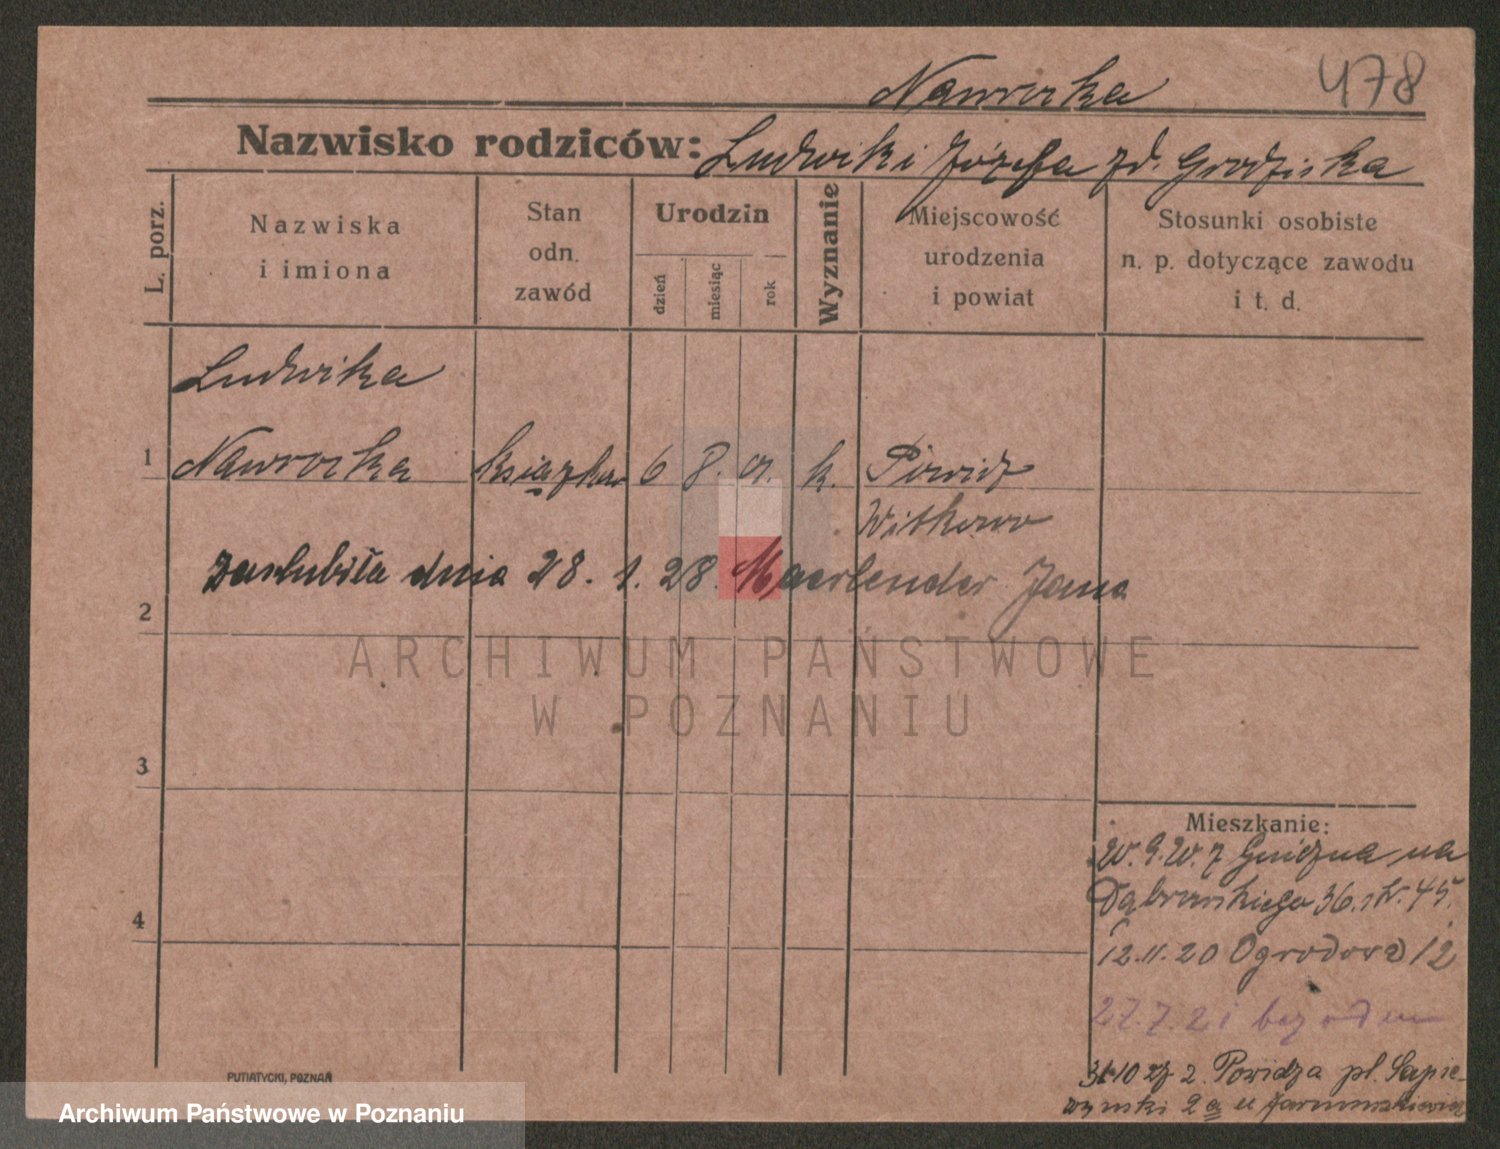 Nawrocka
478
Nazwisko rodziców: Ludwik i Józefa zd. Grodziska
L. porz.
Nazwiska i imiona
Stan odn. zawód
Urodzin
dzień
miesiąc
rok
Wyznanie
Miejscowość urodzenia i powiat
Stosunki osobiste n. p. dotyczące zawodu i t. d.
Ludwika
1 Nawrocka 6 8. k. Powidz
Witkowo
zaślubiła dnia 28. 1. 28. Jana
2
ARCHIWUM PAŃSTWOWE
W POZNANIU
3
4
Mieszkanie:
z Gniezna na
Dąbrowskiego 36. 45.
12.11.20 Ogrodowa 12
27.7.21
31.10 z Powidza pl. Sapie-
żyński 2a u
PUTIATYCKI, POZNAŃ
Archiwum Państwowe w Poznaniu